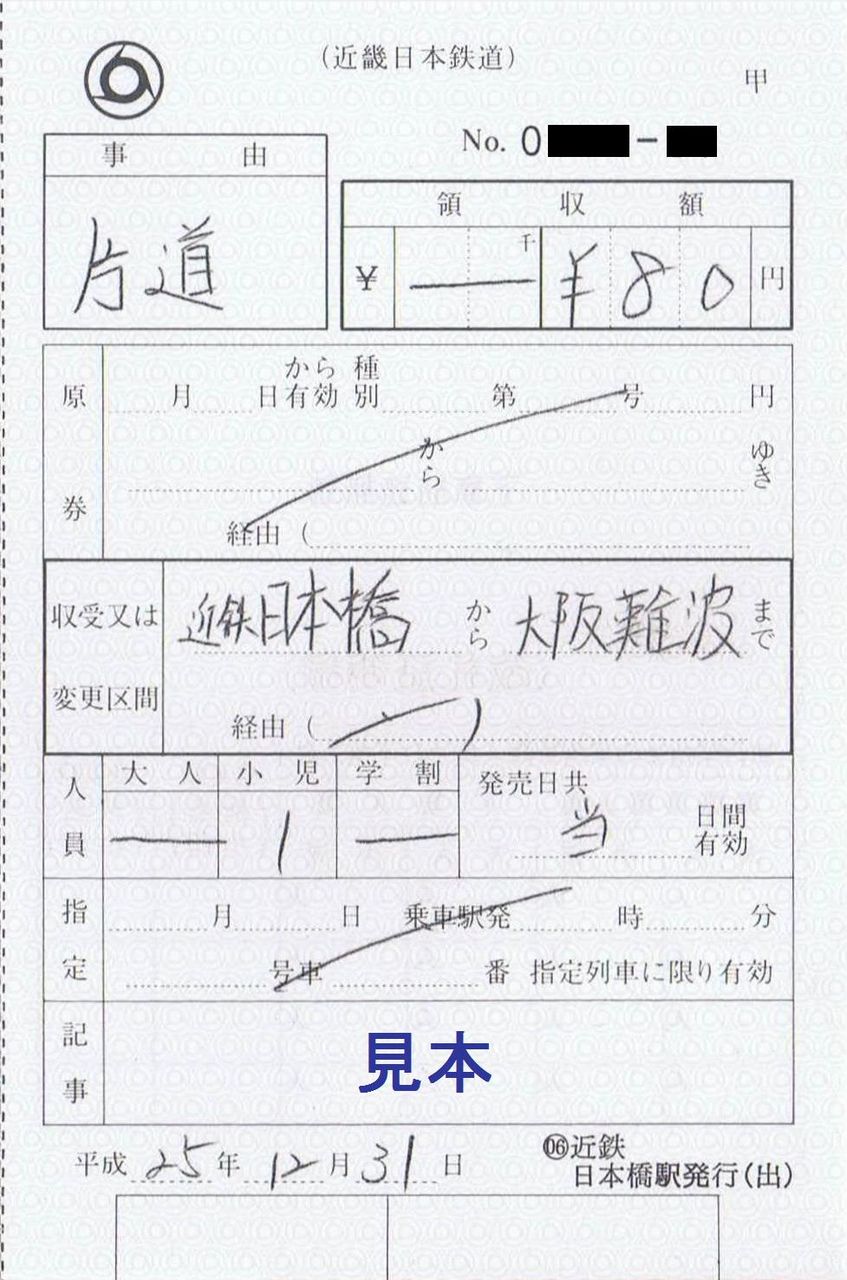 (近畿日本鉄道)
甲
No. 0 -
事 由
片道
領 収 額
千
¥ — ¥ 8 0 円
原券
から 種
月 日有効 別 第 号 円
から ゆき
経由 (
収受又は
変更区間
近鉄日本橋 から 大阪難波 まで
経由 ( )
人員
大人 小児 学割
— 1 —
発売日共
当 日間有効
指定
月 日 乗車駅発 時 分
号車 番 指定列車に限り有効
記事
見本
平成 25 年 12 月 31 日
06近鉄
日本橋駅発行(出)